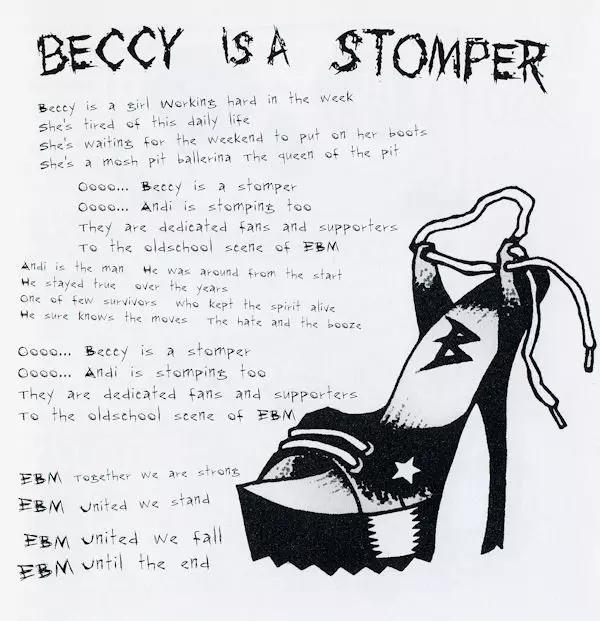 BECCY IS A STOMPER
Beccy is a girl Working hard in the week
She's tired of this daily life
She's waiting for the weekend to put on her boots
She's a mosh pit ballerina The queen of the pit
Oooo... Beccy is a stomper
Oooo... Andi is stomping too
They are dedicated fans and supporters
To the oldschool scene of EBM
Andi is the man He was around from the start
He stayed true over the years
One of few survivors who kept the spirit alive
He sure knows the moves The hate and the booze
Oooo... Beccy is a stomper
Oooo... Andi is stomping too
They are dedicated fans and supporters
To the oldschool scene of EBM
B
EBM Together we are strong
EBM United we stand
EBM United we fall
EBM Until the end